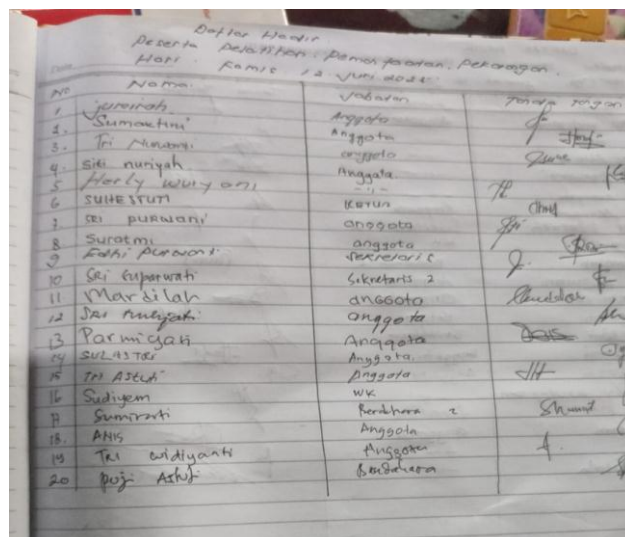 Daftar Hadir
Peserta Pelatihan Pemanfaatan Pekarangan
Hari Kamis 12 Juni
No Nama Jabatan Tanda tangan
1. jureinah Anggota
2. Sumartini Anggota
3. Tri anggota
4. Siti nuriyah Anggota
5 Herly wuryani - " -
6 SUHESTUTI KETUA
7. SRI PURWANI anggota
8 Suratmi anggota
9 Endhi Purwanti Sekretaris
10 Sri Suparwati Sekretaris 2
11 Mardilah anggota
12 SRI anggota
13 Parmigati Anggota
14 SULASTRI Anggota.
15 TRI Astuti Anggota
16 Sudiyem WK
17 Sumirati Bendahara 2
18. ANIS Anggota
19 TRI widiyanti Anggota
20 puji Astuti Bendahara